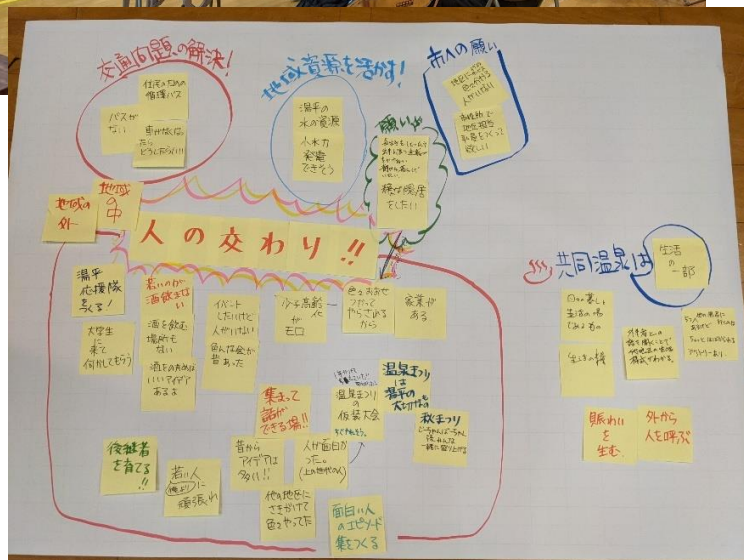 交通問題の解決!
住民のための
循環バス
バスが
ない
車がなくなっ
たら
どうしたらいい!!
地域資源を活かす!
湯平の
水の資源
小水力
発電
できそう
市への願い
人がいない
地域担当
職員をつくって
欲しい
願い
穏な隠居
をしたい
地域の
外
地域
の中
人の交わり!!
湯平
応援隊
をつくる!
大学生
に来て
何かしてもらう
若いのが
酒飲まない
酒を飲む
場所も
ない
酒をのめば
いいアイデア
あるよ
イベント
したいけど
人がいない
色んな会が
昔あった
少子高齢化
が
モロ
色々おおせ
つかって
やらされる
から
家業が
ある。
集まって
話が
できる場!!
温泉まつり
の
仮装大会
温泉まつり
は
湯平の
大切なもの
秋まつり
じーちゃんばーちゃん
後継者
を育てる
!!
若い人
に
頑張れ
昔から
アイデアは
多い!!
人が面白か
った。
(上の世代の人)
他の地区に
さきがけて
色々やってた
面白い人
のエピソード
集をつくる
共同温泉は
生活
の
一部
日々の暮し
生活の場
である
賑わい
を
生む
外から
人を呼ぶ